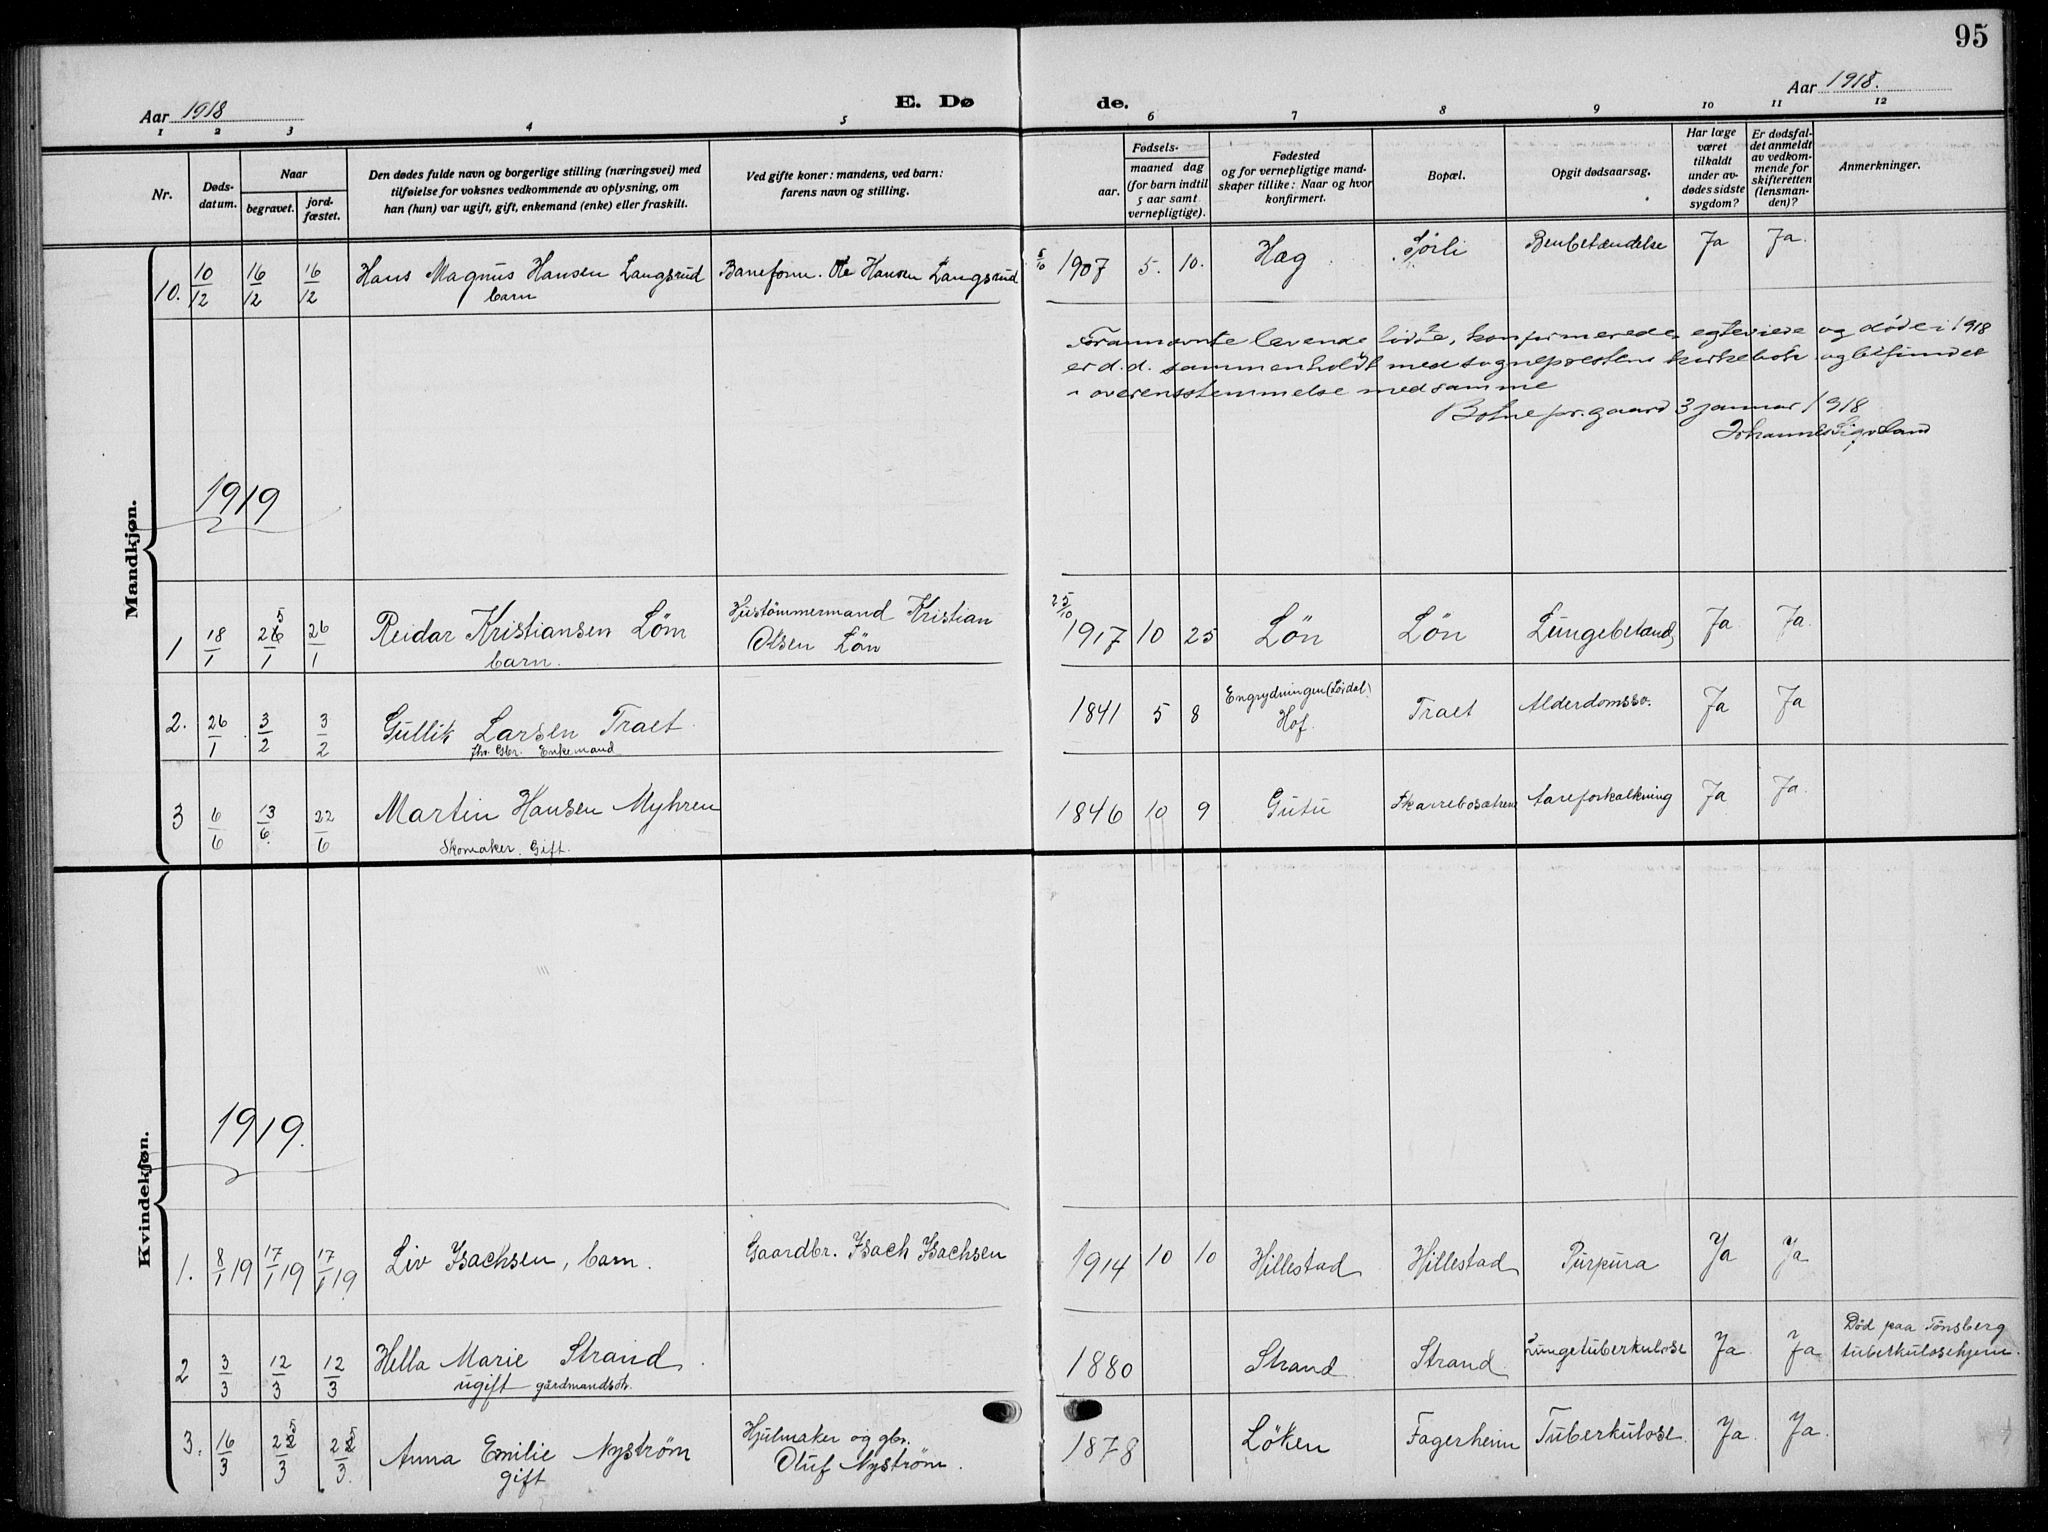 95
Aar 1918
E. Dø
de.
Aar 1918.
1 2 3 4 5 6 7 8 9 10 11 12
Nr.
Døds-
datum.
Naar
begravet.
jord-
fæstet.
Den dødes fulde navn og borgerlige stilling (næringsvei) med
tilføielse for voksnes vedkommende av oplysning, om
han (hun) var ugift, gift, enkemand (enke) eller fraskilt.
Ved gifte koner: mandens, ved barn:
farens navn og stilling.
Fødsels-
aar.
maaned dag
(for barn indtil
5 aar samt
vernepligtige).
Fødested
og for vernepligtige mand-
skaper tillike: Naar og hvor
konfirmert.
Bopæl.
Opgit dødsaarsag.
Har læge
været
tilkaldt
under av-
dødes sidste
sygdom?
Er dødsfal-
det anmeldt
av vedkom-
mende for
skifteretten
(lensman-
den)?
Anmerkninger.
Mandkjøn.
10. 10/12 16/12 16/12 Hans Magnus Hansen Langsrud Baneform. Ole Hansen Langsrud 5/10 1907 5. 10. Hæg Sørli Benbetændelse Ja Ja.
barn
Forannævnte levende fødte, konfirmerede, egteviede og døde i 1918
er d.d. sammenholdt med sogneprestens kirkebok og befundet
i overensstemmelse med samme
Botne pr.gaard 3 januar 1918
Johannes Sigvland
1919
1 18/1 265/1 26/1 Reidar Kristiansen Løm Hustömmermand Kristian 25/10 1917 10 25 Løn Løn Lungebetænd, Ja Ja.
barn. Olsen Løn
2. 26/1 3/2 3/2 Gullik Larsen Traet 1841 5 8 Engrydningen (Löjdal) Traet Alderdomssv. Ja Ja
fhv. Gbr. Enkemand Hof.
3 6/6 13/6 22/6 Martin Hansen Myhren 1846 10 9 Gutu Skarrebosætren Aareforkalkning Ja Ja.
Skomaker. Gift.
Kvindekjøn.
1919.
1. 8/1 19 17/1 19 17/1 19 Liv Isachsen, barn. Gaardbr. Isach Isachsen 1914 10 10 Hillestad Hillestad Purpura Ja Ja
2 3/3 12/3 12/3 Hella Marie Strand 1880 Strand Strand Lungetuberkulose Ja Ja Død paa Tönsberg
ugift gårdmandsdtr. tuberkulosehjem.
3. 16/3 225/3 225/3. Anna Emilie Nyström Hjulmaker og gbr. 1878 Löken Fagerheim Tuberkulose. Ja Ja.
gift Oluf Nyström.